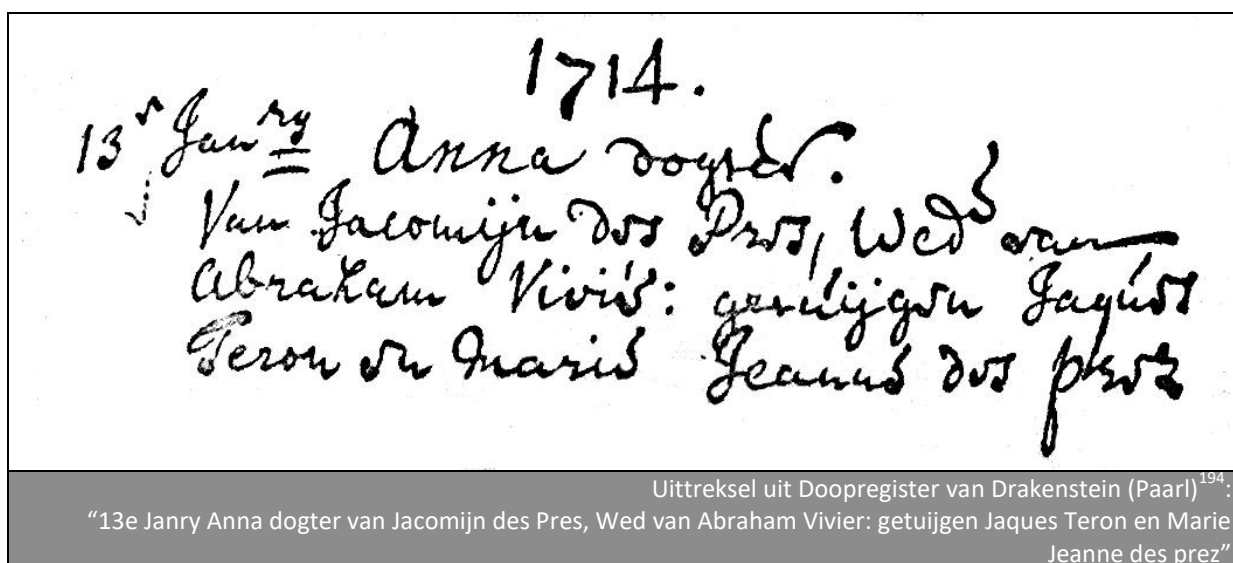 1714.
13e Janry Anna dogter.
Van Jacomijn des Pres, Wed van
Abraham Vivié: getuijgen Jaques
Teron en Marie Jeanne des prez
Uittreksel uit Doopregister van Drakenstein (Paarl)194:
“13e Janry Anna dogter van Jacomijn des Pres, Wed van Abraham Vivier: getuijgen Jaques Teron en Marie
Jeanne des prez”